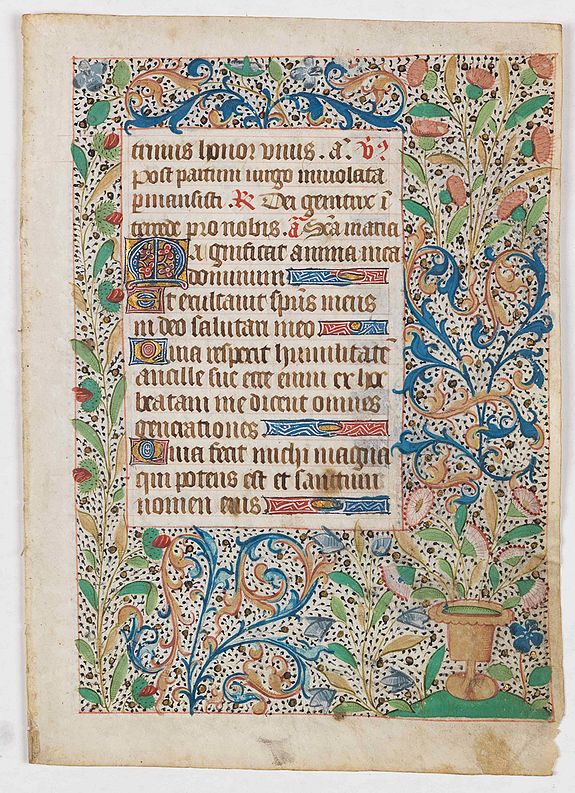 trinus honor vnus . a. v̄
Post partum uirgo inuiolata
p̄mansisti . R̄ Dei genitrix ī
tercede pro nobis . ā Sc̄a maria
Magnificat anima mea
dominum
Et exultauit sp̄us meus
in deo salutari meo
Quia respexit humilitatē
ancille sue ecce enim ex hoc
beatam me dicent omnes
generationes
Quia fecit michi magna
qui potens est et sanctum
nomen eius